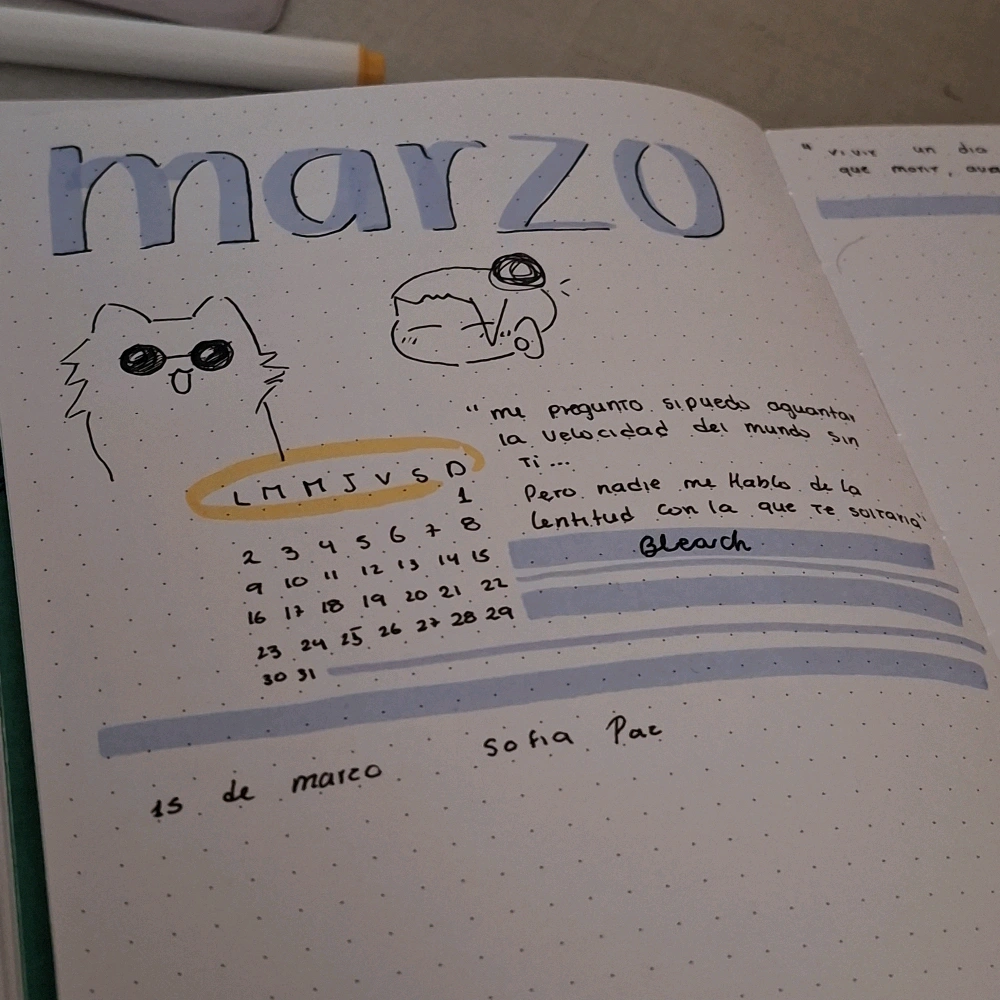 marzo
"me pregunto si puedo aguantar
la velocidad del mundo sin
Ti...
Pero nadie me Hablo de la
lentitud con la que Te soltaria"
Bleach
L M M J V S D
1
2 3 4 5 6 7 8
9 10 11 12 13 14 15
16 17 18 19 20 21 22
23 24 25 26 27 28 29
30 31
15 de marzo Sofia Paz
" vivir un dia
que morir,